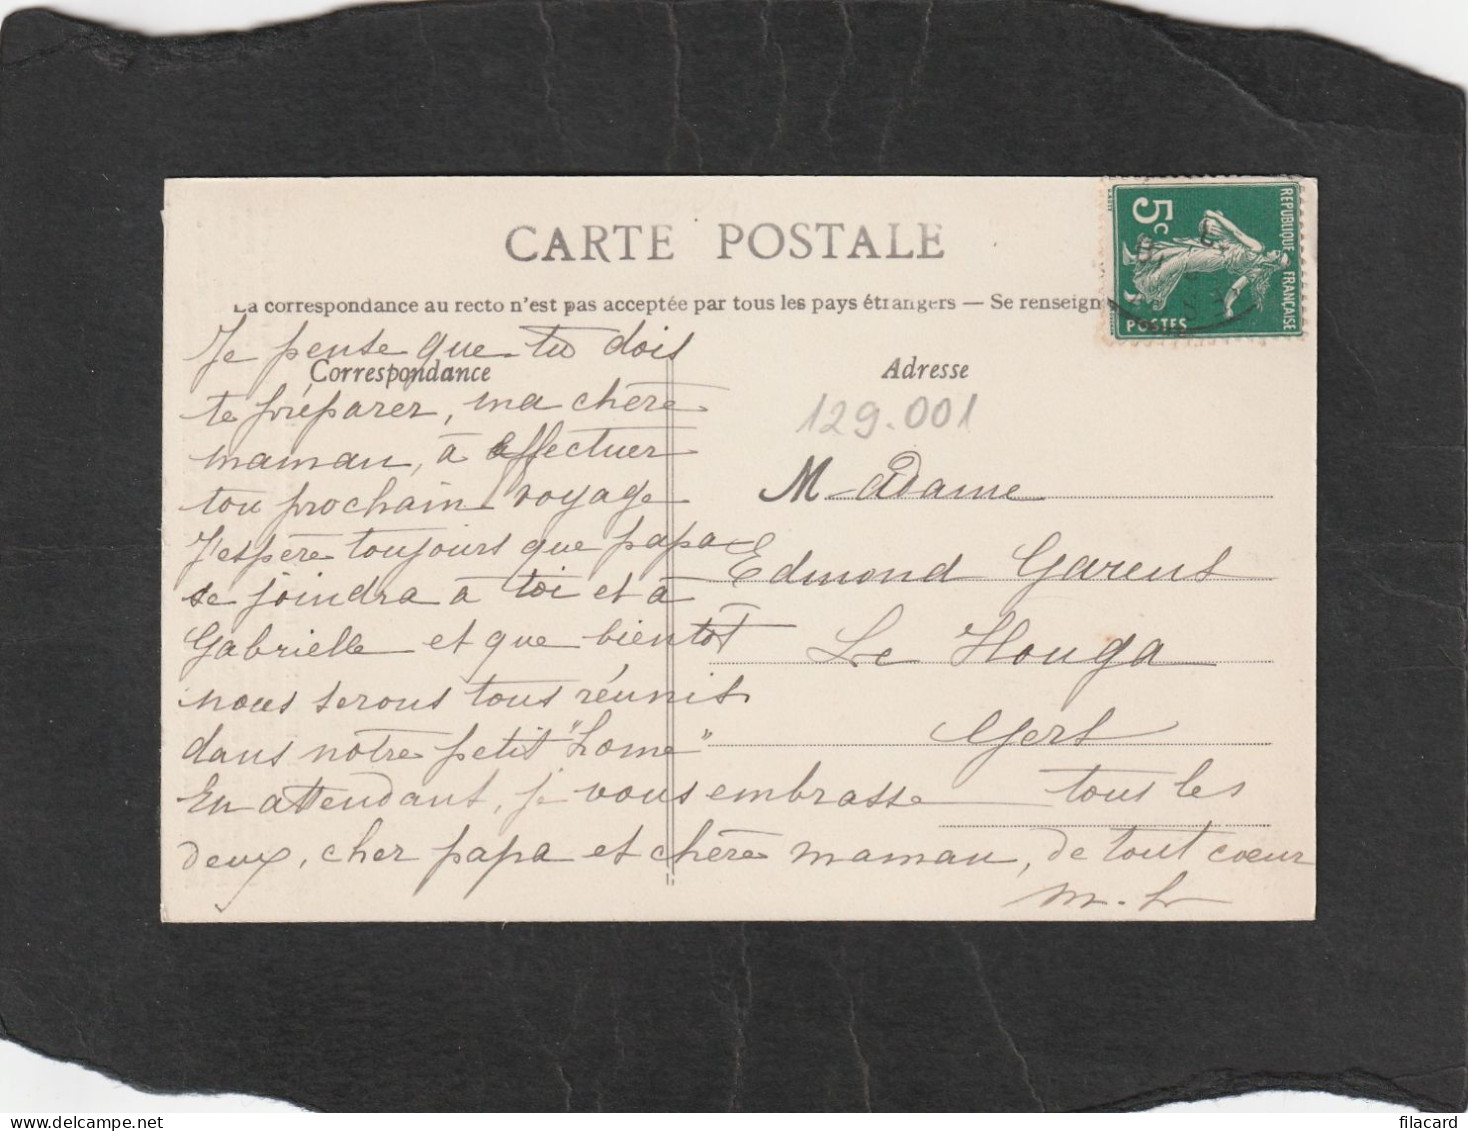 CARTE POSTALE
5c
REPUBLIQUE FRANÇAISE
POSTES
La correspondance au recto n'est pas acceptée par tous les pays étrangers — Se renseign
Correspondance
Adresse
129.001
Je pense que tu dois
te préparer, ma chère
maman, à effectuer
ton prochain voyage
J'espère toujours que papa
se joindra à toi et à
Gabrielle et que bientôt
nous serons tous réunis
dans notre petit "home"
En attendant, je vous embrasse tous les
deux, cher papa et chère maman, de tout cœur
Madame
Edmond Garens
Le Houga
Gers
filacard